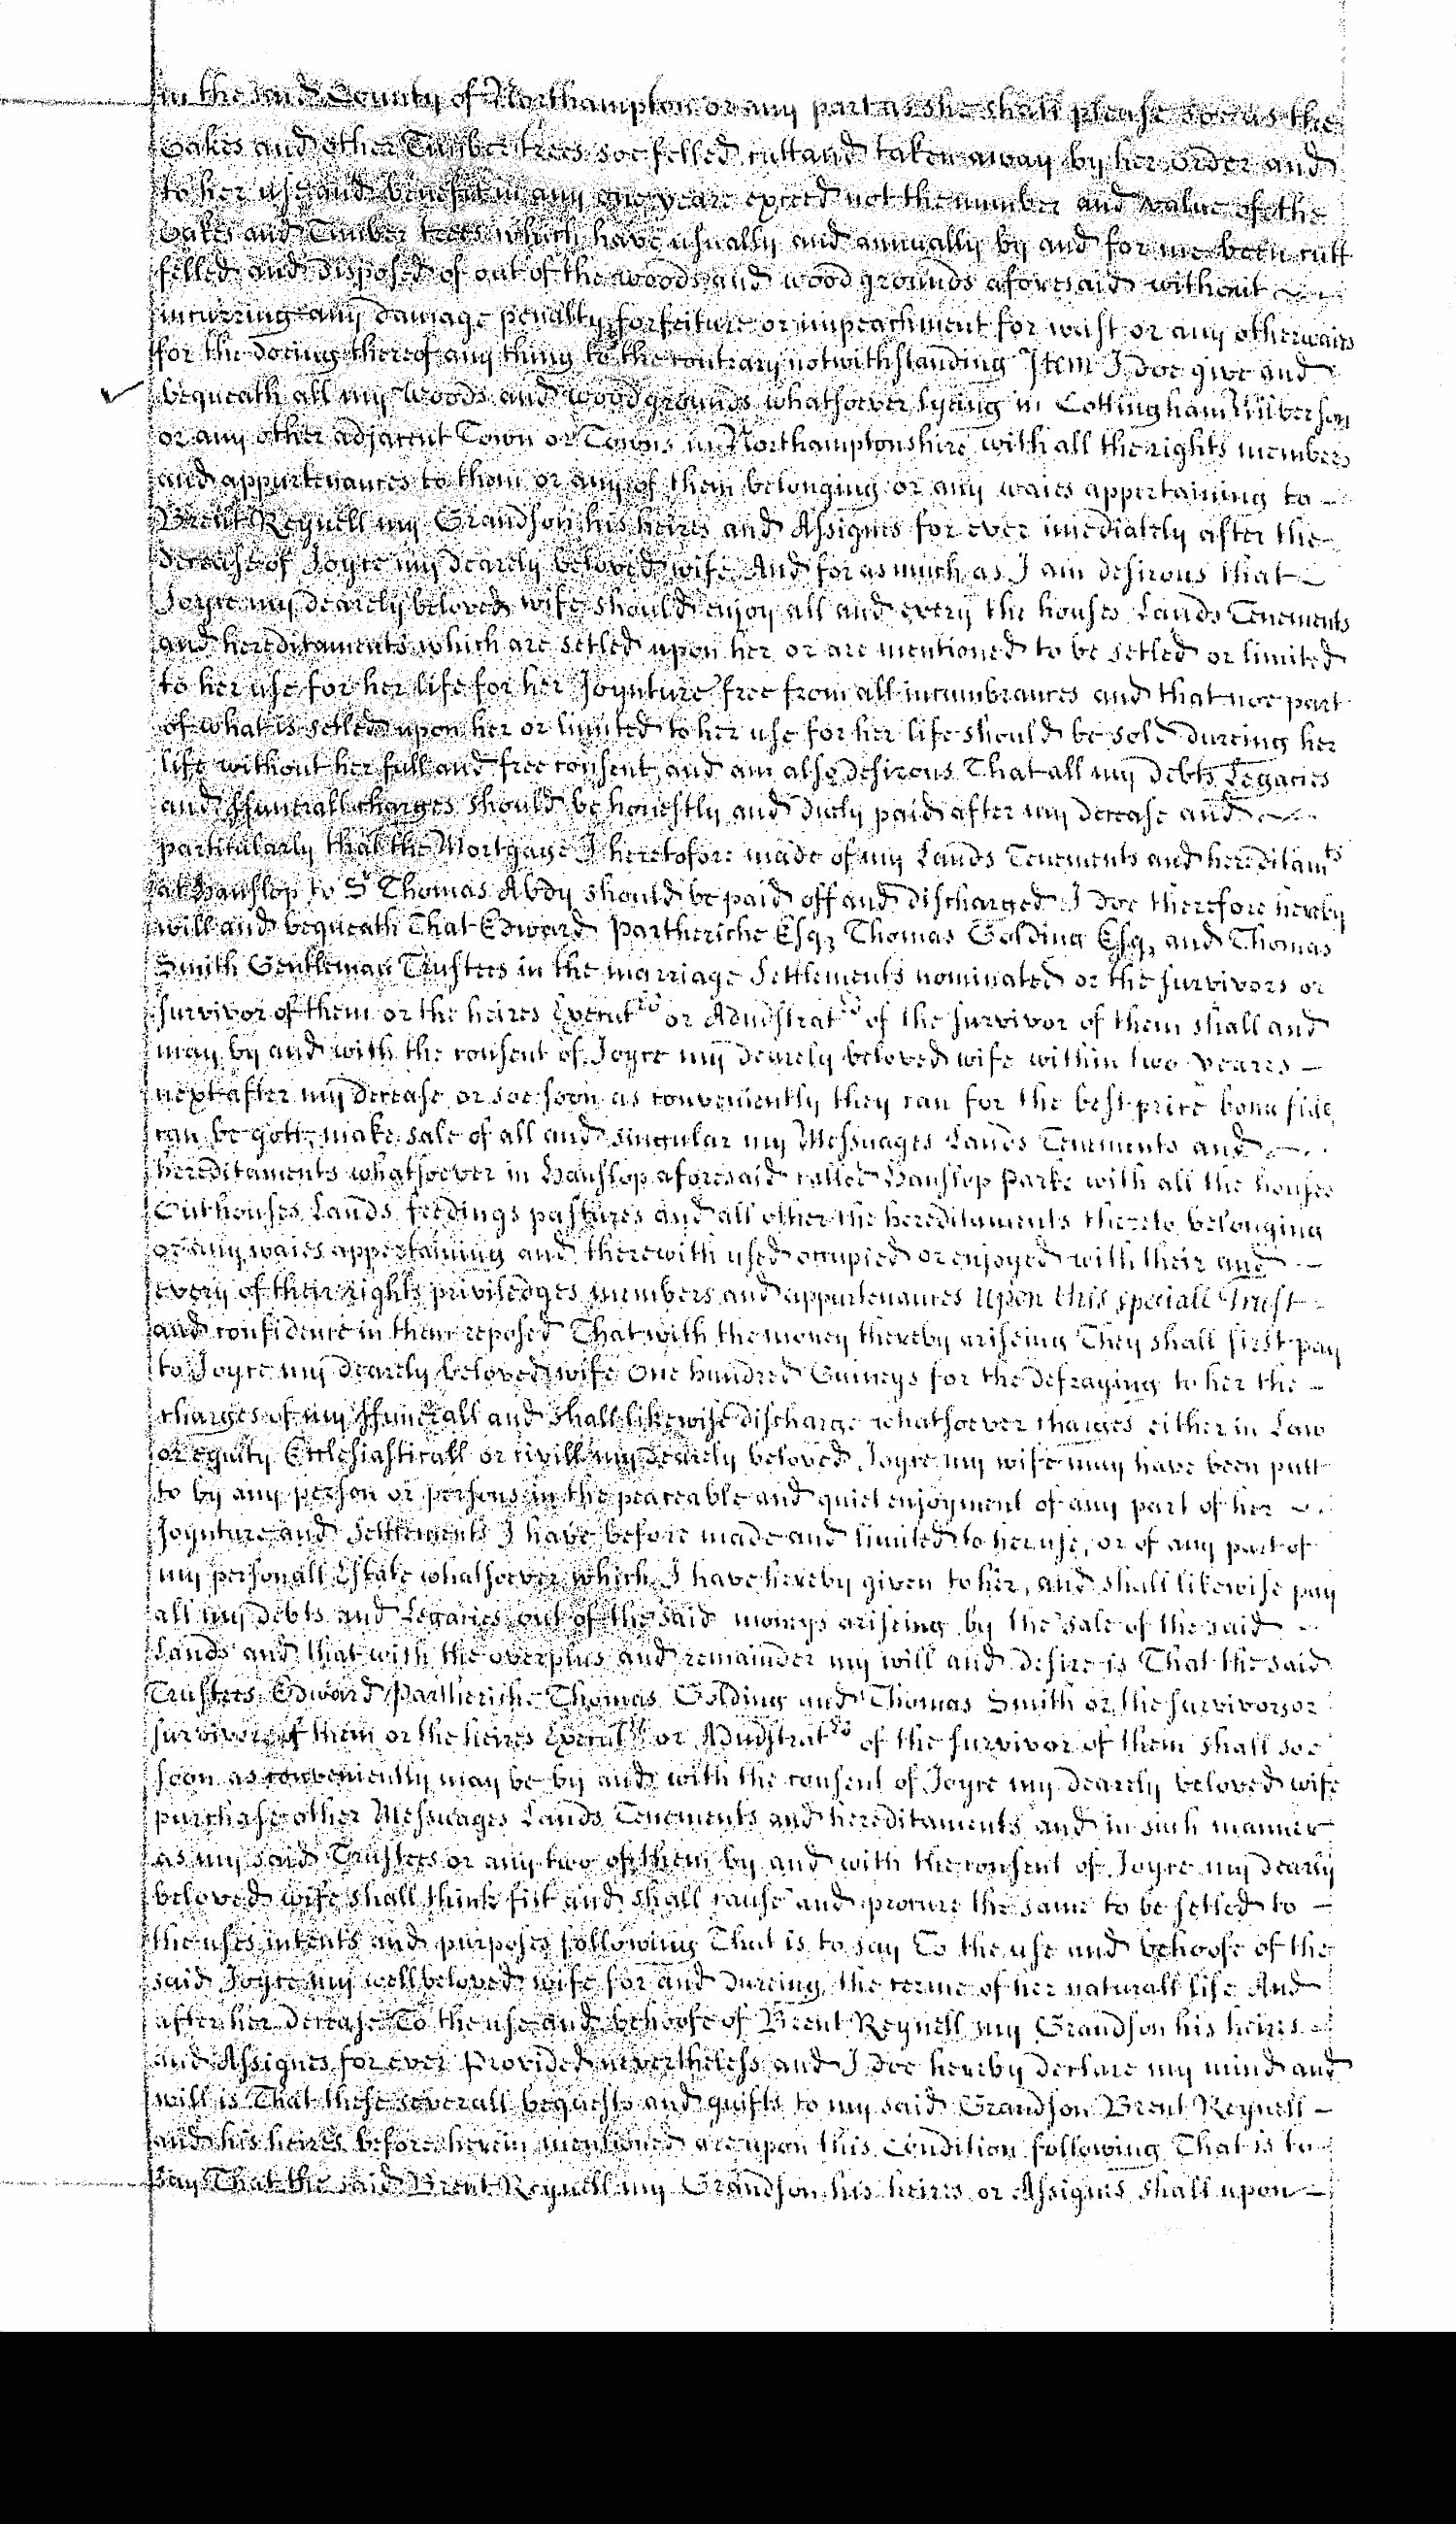 in the said County of Northampton or any part as she shall please soe as the
Oakes and other Timber trees soe felled cutt and taken away by her order and
to her use and benefit in any one yeare exceed not the number and value of the
Oakes and Timber trees which have usually and annually by and for me been cutt
felled and disposed of out of the woods and wood grounds aforesaid without
incurring any damage penalty forfeiture or impeachment for wast or any otherwaies
for the doeing thereof any thing to the contrary notwithstanding Item I doe give and
bequeath all my woods and wood grounds whatsoever lyeing in Cottingham
or any other adjacent Town or Towns in Northamptonshire with all the rights members
and appurtenances to them or any of them belonging or any waies appertaining to
Brent Reynell my Grandson his heires and Assignes for ever imediately after the
decease of Joyce my dearely beloved wife And for as much as I am desirous that
Joyce my dearely beloved wife should enjoy all and every the houses Lands Tenements
and hereditaments which are setled upon her or are mentioned to be setled or limited
to her use for her life for her Joynture free from all incumbrances and that noe part
of what is setled upon her or limited to her use for her life should be sold dureing her
life without her full and free consent and am also desirous That all my debts Legacies
and ffunerall charges should be honestly and duely paid after my decease and
particularly that the Mortgage I heretofore made of my Lands Tenements and hereditamts
at Hanslop to Sr Thomas Abdy should be paid off and discharged I doe therefore hereby
will and bequeath That Edward Partheriche Esq, Thomas Golding Esq, and Thomas
Smith Gentleman Trustees in the marriage Settlements nominated or the survivors or
survivor of them or the heires Executrs or Admistratrs of the survivor of them shall and
may by and with the consent of Joyce my dearely beloved wife within two yeares
next after my decease or soe soon as conveniently they can for the best price bona fide
can be gott, make sale of all and singular my Messuages Lands Tenements and
hereditaments whatsoever in Hanslop aforesaid called Hanslop Parke with all the houses
Outhouses Lands feedings pastures and all other the hereditaments thereto belonging
or any waies appertaining and therewith used occupied or enjoyed with their and
every of their rights priviledges members and appurtenances Upon this speciall Trust
and confidence in them reposed That with the money thereby ariseing They shall first pay
to Joyce my dearely beloved wife One hundred Guineys for the defraying to her the
charges of my ffunerall and shall likewise discharge whatsoever charges either in Law
or equity Ecclesiasticall or civill my dearely beloved Joyce my wife may have been putt
to by any person or persons in the peaceable and quiet enjoyment of any part of her
Joynture and Settlements I have before made and limited to her use, or of any part of
my personall Estate whatsoever which I have hereby given to her, and shall likewise pay
all my debts and Legacies out of the said moneys ariseing by the sale of the said
Lands and that with the overplus and remainder my will and desire is That the said
Trustees Edward Partheriche Thomas Golding and Thomas Smith or the survivors or
survivor of them or the heires Executrs or Admistratrs of the survivor of them shall soe
soon as conveniently may be by and with the consent of Joyce my dearely beloved wife
purchase other Messuages Lands Tenements and hereditaments and in such manner
as my said Trustees or any two of them by and with the consent of Joyce my dearly
beloved wife shall think fitt and shall cause and procure the same to be setled to
the uses intents and purposes following That is to say To the use and behoofe of the
said Joyce my well beloved wife for and dureing the terme of her naturall life And
after her decease To the use and behoofe of Brent Reynell my Grandson his heires
and Assignes for ever Provided nevertheless and I doe hereby declare my mind and
will is That these severall bequests and guifts to my said Grandson Brent Reynell
and his heires before herein mentioned are upon this Condition following That is to
say That the said Brent Reynell my Grandson his heires or Assignes shall upon